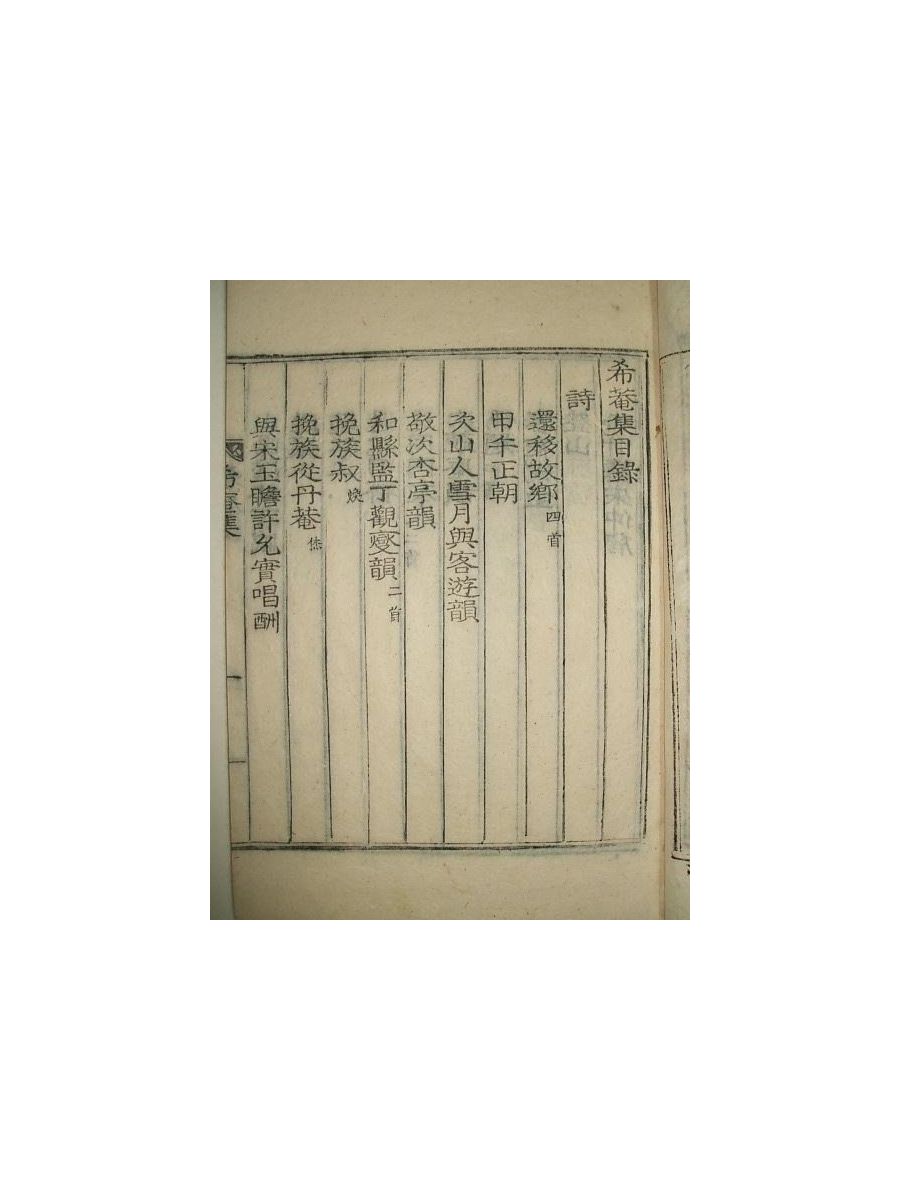 希菴集目錄
詩
還移故鄉 四首
甲午正朝
次山人雪月與客遊韻
敬次杏亭韻
和縣監丁觀燮韻 二首
挽族叔 煥
挽族從丹菴
與宋玉瞻許允實唱酬
希菴集
一